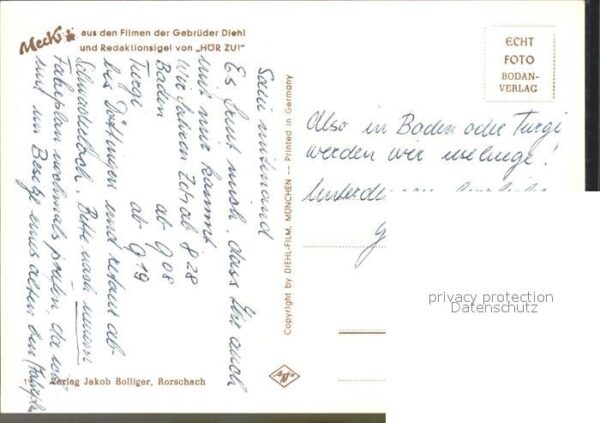 Mecki aus den Filmen der Gebrüder Diehl
und Redaktionsigel von „HÖR ZU!"
ECHT
FOTO
BODAN-
VERLAG
Copyright by DIEHL-FILM, MÜNCHEN — Printed in Germany
Agfa
Verlag Jakob Bolliger, Rorschach
Es freut mich, dass Ihr auch
mit mir kommt
Wir fahren Zch ab 8 28
Baden ab 9 08
Turgi ab 9 19
bis Döttingen und retour ab
Bitte nach neuem
Fahrplan nochmals prüfen, da ich
nur im Besitze eines alten bin (Fahrplan
Also in Baden oder Turgi
werden wir
privacy protection
Datenschutz